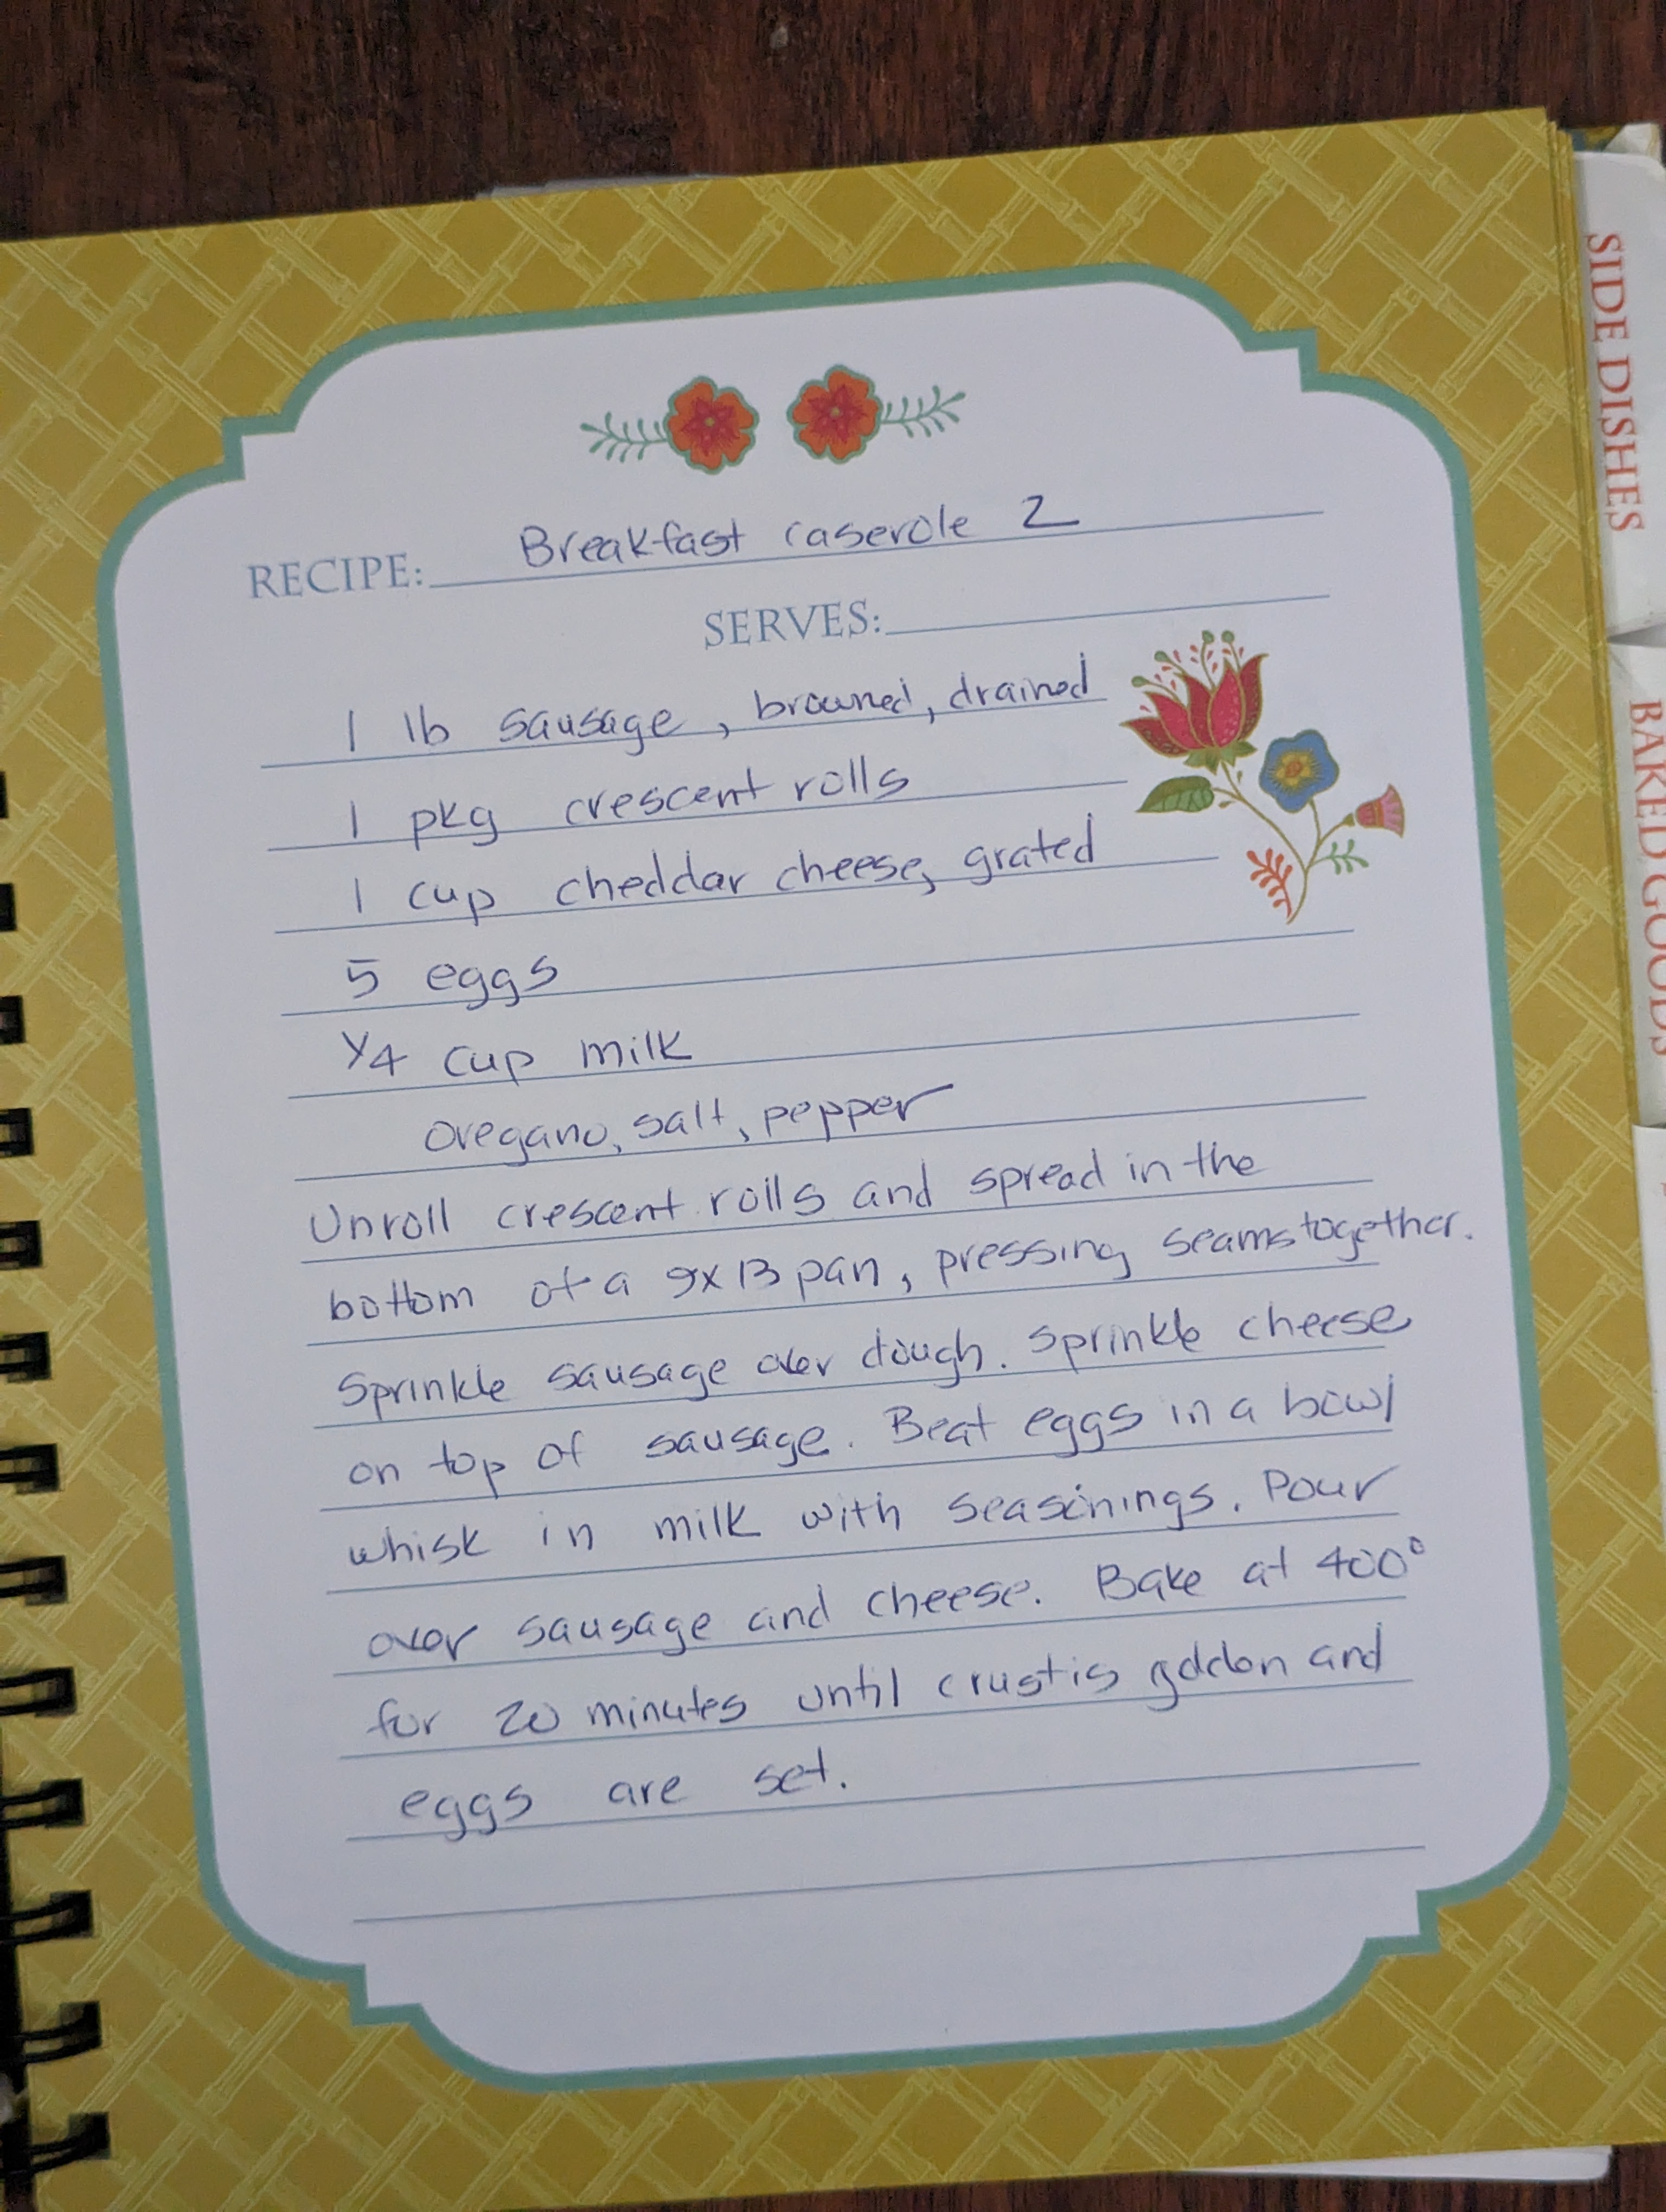 RECIPE: Breakfast caserole 2
SERVES:
1 lb sausage, browned, drained
1 pkg crescent rolls
1 cup cheddar cheese, grated
5 eggs
1/4 cup milk
oregano, salt, pepper
Unroll crescent rolls and spread in the
bottom of a 9x13 pan, pressing seams together.
Sprinkle sausage over dough. Sprinkle cheese
on top of sausage. Beat eggs in a bowl
whisk in milk with seasonings. Pour
over sausage and cheese. Bake at 400°
for 20 minutes until crust is golden and
eggs are set.
SIDE DISHES
BAKED GOODS